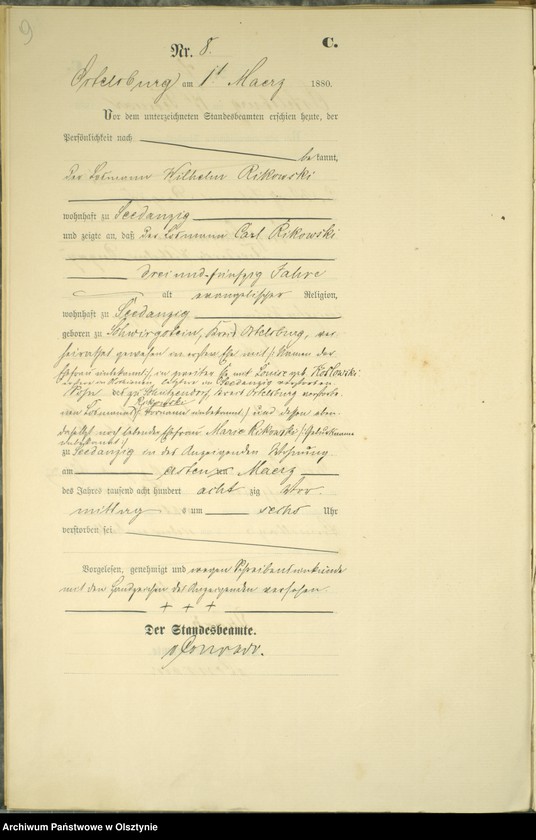 9
Nr. 8. C.
Ortelsburg am 1t Maerz 1880.
Vor dem unterzeichneten Standesbeamten erschien heute, der
Persönlichkeit nach
be kannt,
der Losmann Wilhelm Rikowski
wohnhaft zu Seedanzig
und zeigte an, daß der Losmann Carl Rikowski
drei und fünfzig Jahre
alt evangelischer Religion,
wohnhaft zu Seedanzig
geboren zu Schwirgstein, Kreis Ortelsburg, ver
heirathet gewesen in erster Ehe mit /: Namen der
Ehefrau unbekannt :/, in zweiter Ehe mit Louise geb. Koslowski
in Seedanzig verstorben
Sohn des zu Kreis Ortelsburg verstorbe
nen Losmann Rikowski /: Vorname unbekannt :/ und dessen eben
daselbst noch lebender Ehefrau Marie Rikowski /: Geburtsname
unbekannt :/
zu Seedanzig in des Anzeigenden Wohnung
am ersten Maerz
des Jahres tausend acht hundert acht zig Vor
mittag s um sechs Uhr
verstorben sei
Vorgelesen, genehmigt und wegen Schreibensunkunde
mit den Handzeichen des Anzeigenden versehen.
+ + +
Der Standesbeamte.
Archiwum Państwowe w Olsztynie